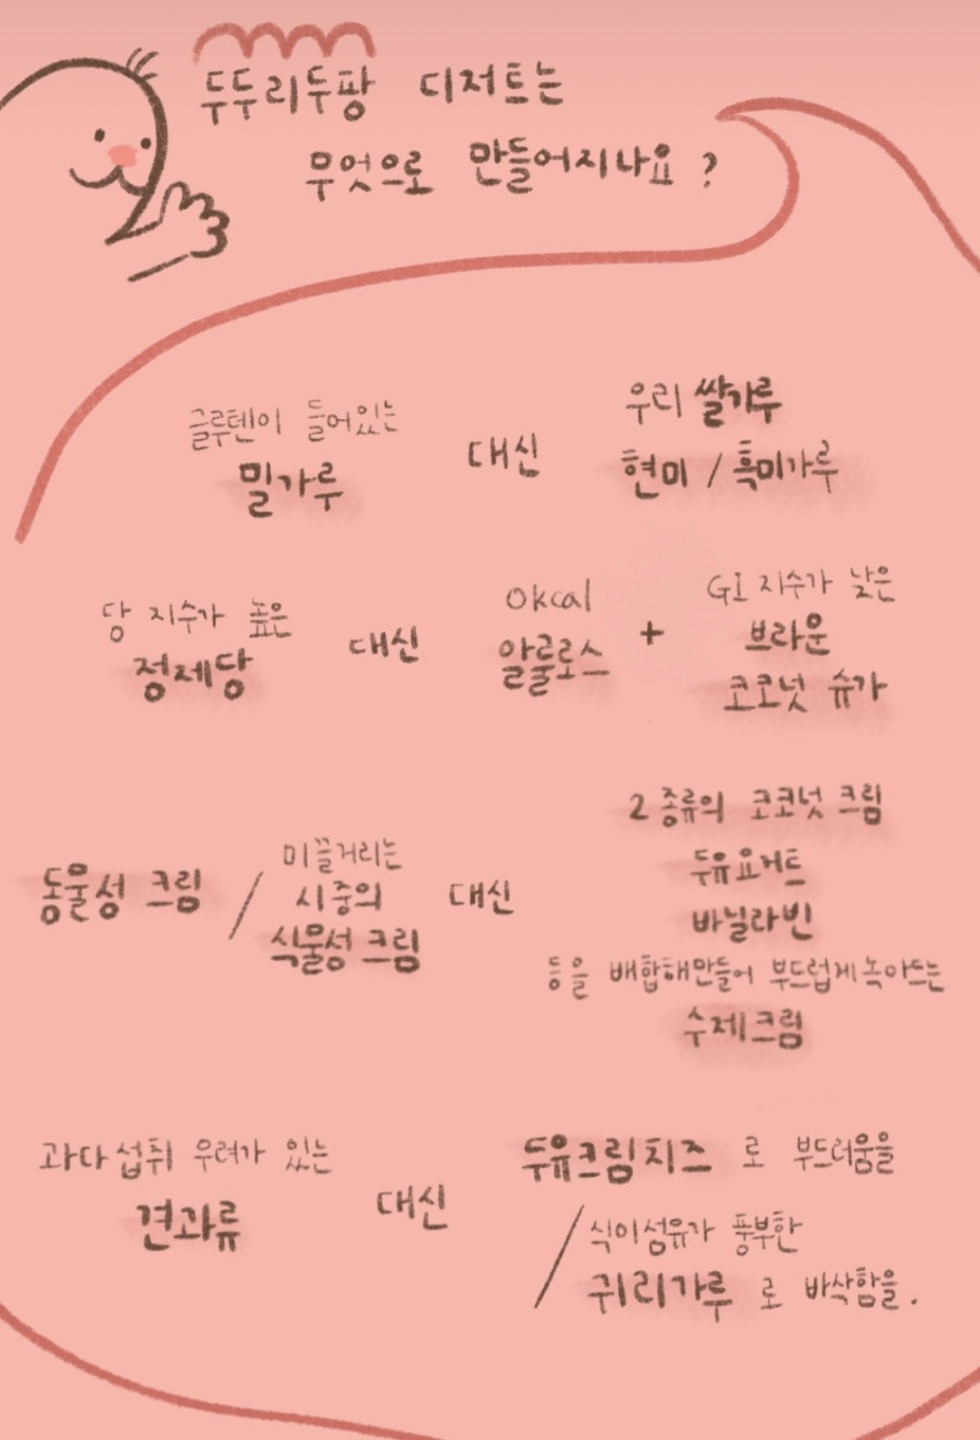 두두리두팡 디저트는
무엇으로 만들어지나요?
글루텐이 들어있는
밀가루
대신
우리 쌀가루
현미 / 흑미가루
당 지수가 높은
정제당
대신
0kcal
알룰로스
+
GI 지수가 낮은
브라운
코코넛 슈가
동물성 크림
/
미끌거리는
시중의
식물성 크림
대신
2종류의 코코넛 크림
두유요거트
바닐라빈
등을 배합해만들어 부드럽게녹아뜨는
수제크림
과다섭취 우려가 있는
견과류
대신
두유크림치즈 로 부드러움을
/ 식이섬유가 풍부한
귀리가루 로 바삭함을.